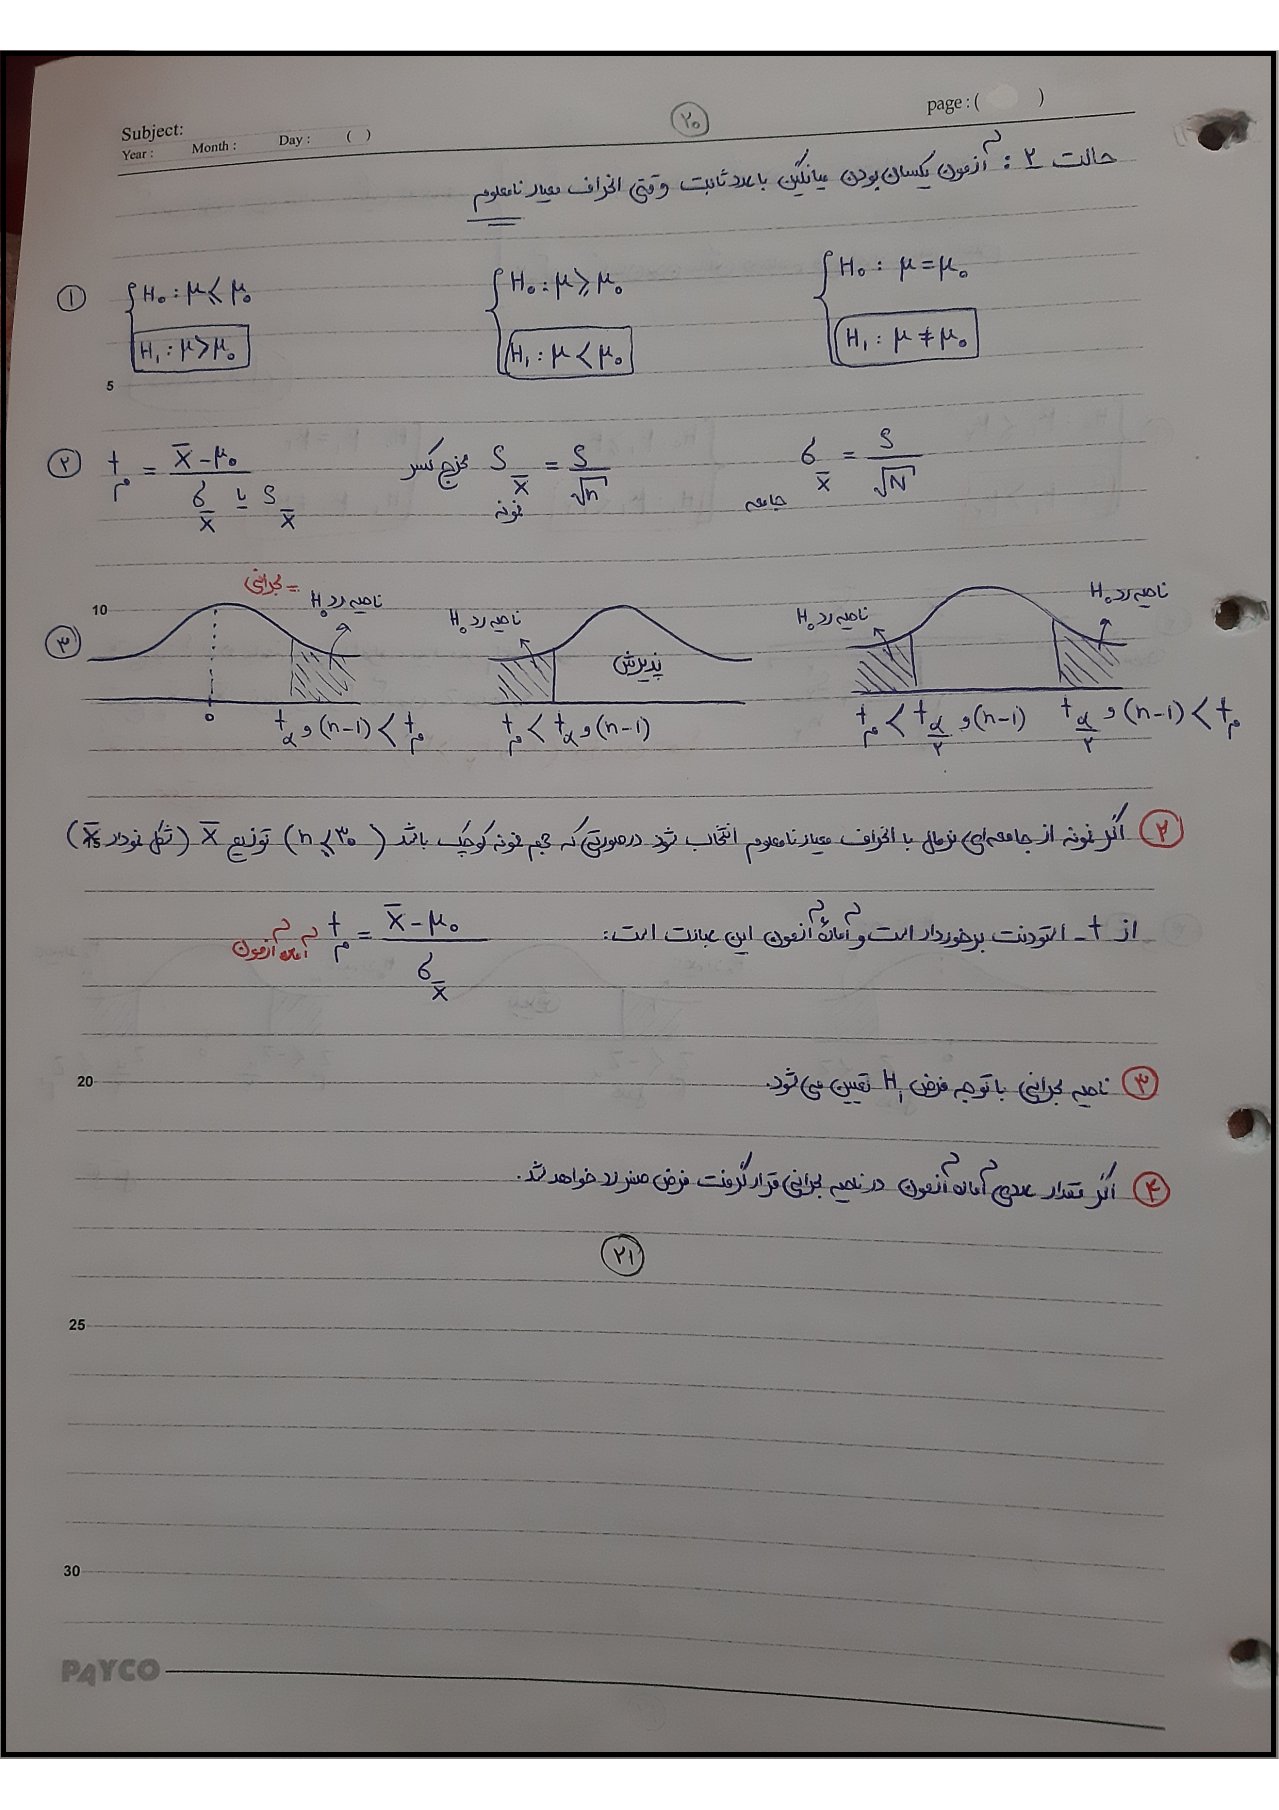 Subject:
Year : Month : Day : ( )
۲۰
page : ( )
حالت ۲ : آزمون یکسان بودن میانگین با عدد ثابت وقتی انحراف معیار نامعلوم
① H₀ : μ ≤ μ₀ H₀ : μ ≥ μ₀ H₀ : μ = μ₀
H₁ : μ > μ₀ H₁ : μ < μ₀ H₁ : μ ≠ μ₀
5
② tₘ = (x̄ - μ₀) / (σx̄ یا Sx̄) مخرج کسر Sx̄ = S/√n نمونه σx̄ = S/√N جامعه
10
③ بحرانی = ناحیه رد H₀ ناحیه رد H₀ پذیرش ناحیه رد H₀ ناحیه رد H₀
0 tα و (n-1) < tₘ tₘ < tα و (n-1) tₘ < tα/۲ و (n-1) tα/۲ و (n-1) < tₘ
② اگر نمونه از جامعه‌ای نرمال با انحراف معیار نامعلوم انتخاب شود درصورتی که حجم نمونه کوچک باشد (n ≤ ۳۰) توزیع x̄ (شکل نمودار x̄)
از t - استودنت برخوردار است و آماره آزمون این عبارت است:
آماره آزمون tₘ = (x̄ - μ₀) / σx̄
20
③ ناحیه بحرانی با توجه فرض H₁ تعیین می شود.
④ اگر مقدار عددی آماره آزمون در ناحیه بحرانی قرار گرفت فرض صفر رد خواهد شد.
۲۱
25
30
PAYCO